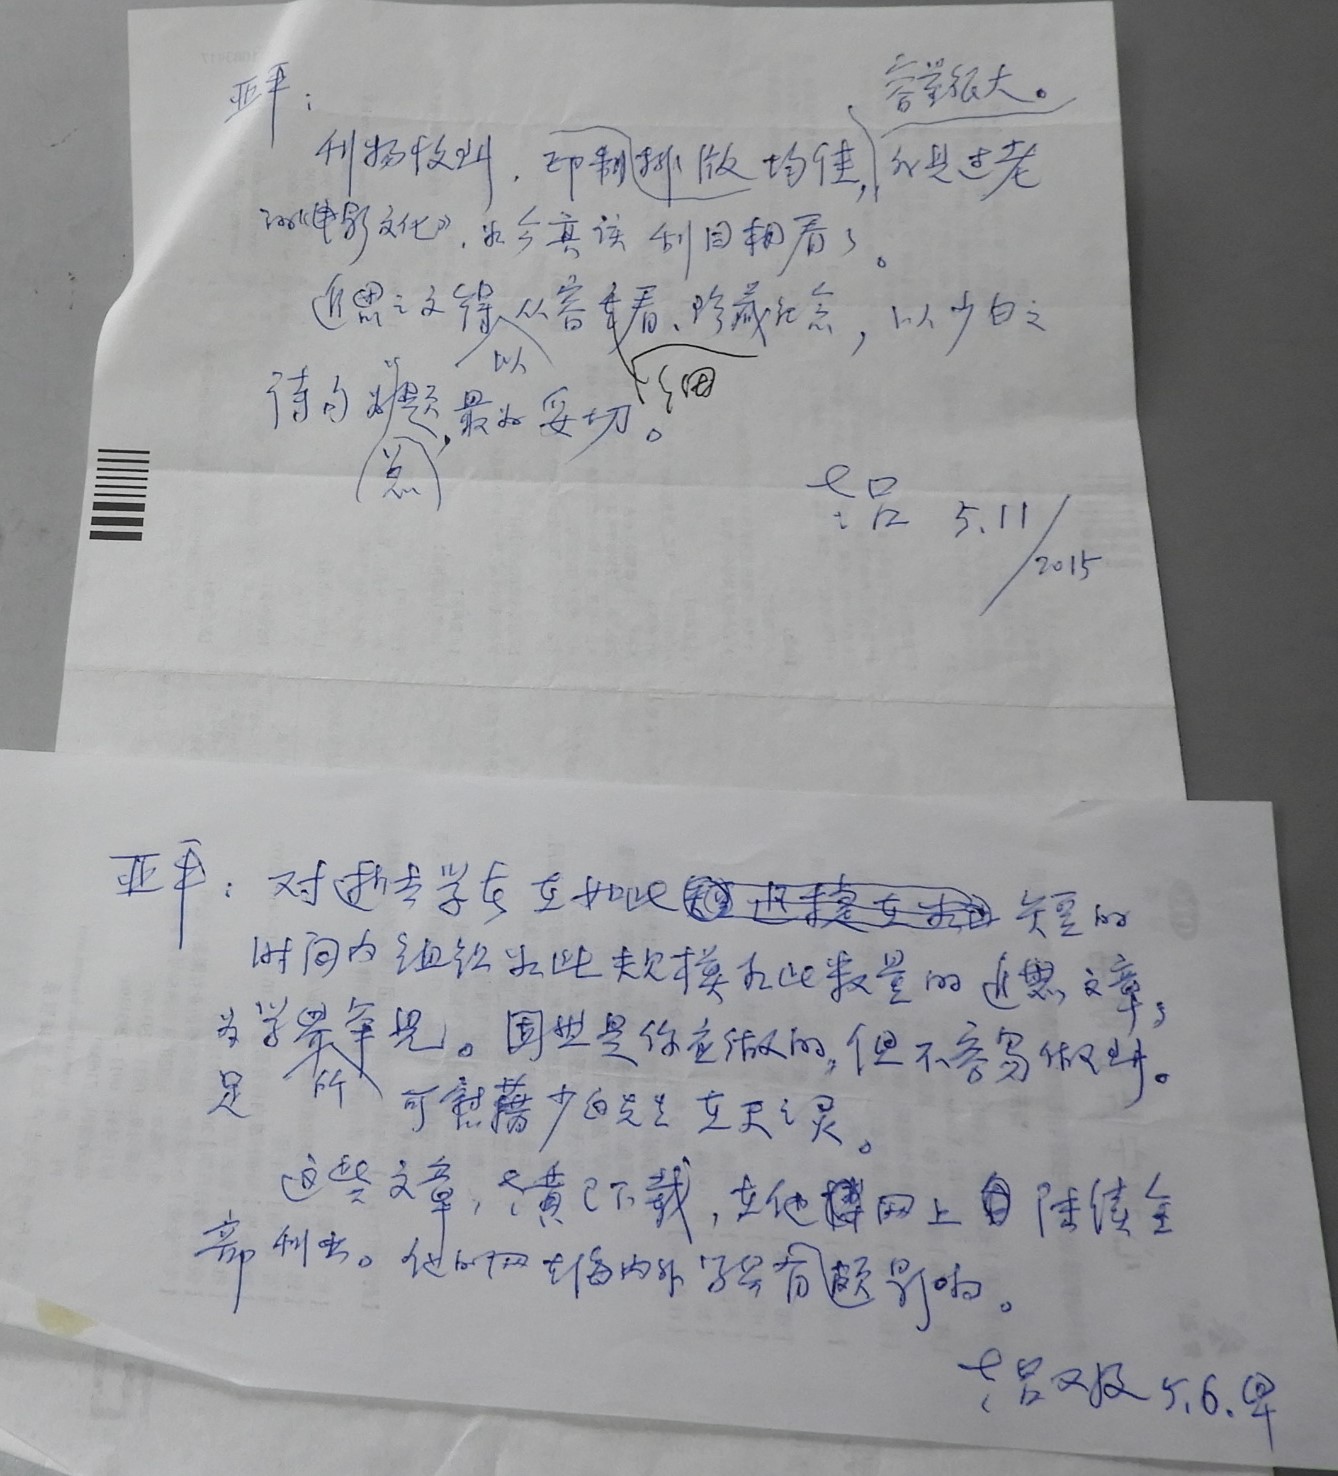 亚平：
容量很大。
刊物收到，印制排版均佳，不是过老
的《电影文化》，如今真该刮目相看了。
追思之文得以从容重看、细珍藏纪念，以少白之
诗句为总题，最为妥切。
老吕 5.11/2015
亚平：对逝去学长在如此短的
时间内组织如此规模如此数量的追思文章，
为学界所罕见。固然是你应做的，但不容易做到。
足可慰藉少白先生在天之灵。
这些文章，老黄已下载，在他网上陆续全
部刊出。他的网在海内外学界有颇影响。
老吕又及 5.6.早